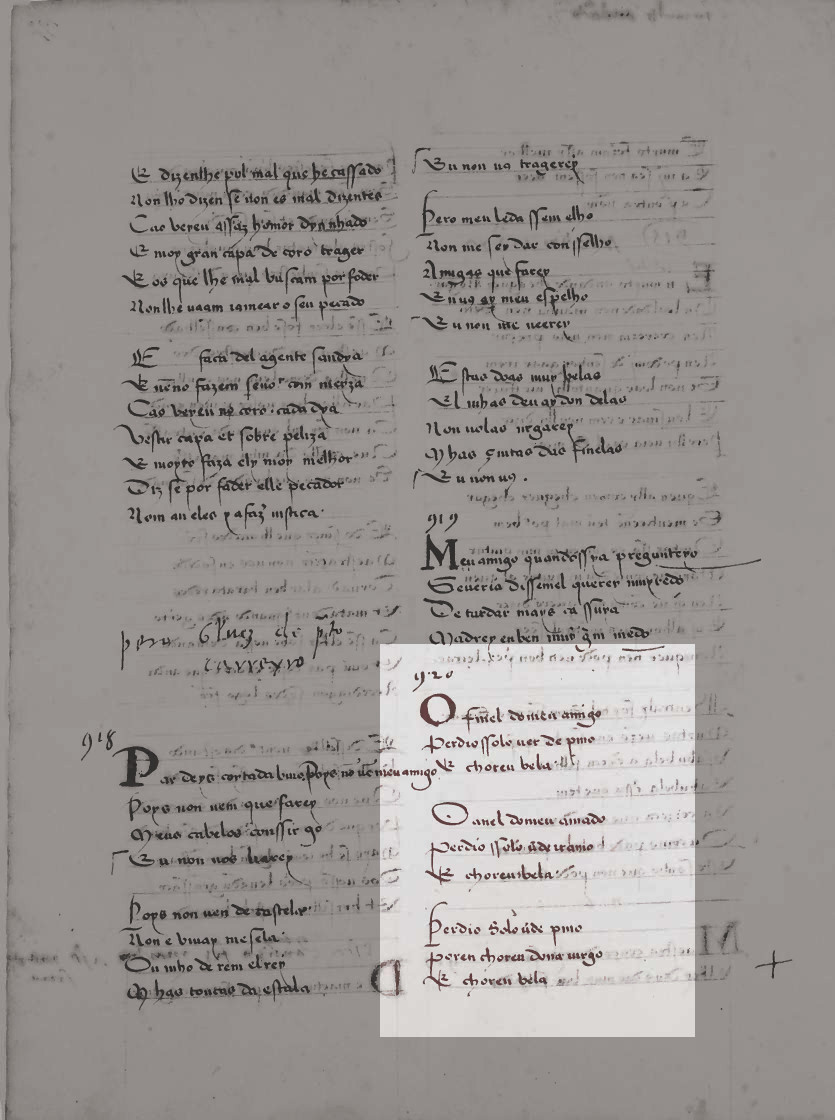 E dizenlhe pol mal que he cassado
Non lho dizen se non os mal dizentes
Cao vereu assaz homor dynnhado
E moy gran capa de coro trager
E os que lhe mal buscam por foder
Non lhe uaam iamear o seu pecado
E faca del agente sandya
E nono fazem seno con
Cao vereu no coro cada dya
Vestir capa et sobre peliza
E moyto faza ely moy melhor
Diz se por fader elle pecador
Nom an eles
pero
918
Par deys coytada vivo Poys no ue meu amigo
Poys non uem que farey
Meus cabelos con sirgo
Eu non uos liarey
Poys non uen de castela
Non e viuay mesela
Ou mho detem elrey
Mhas toucas da estela
Eu non uo tragerey
Pero meu leda ssemelho
Non me sey dar conselho
Amigas que farey
En uos ay meu espelho
Eu non me ueerey
Estas doas muy belas
El mhas deu ay donzelas
Non uolas negarey
Mhas cintas das finelas
Eu non uo.
919
Meu amigo quandossya preguntey o
Seueria dissemel querer
De tardar mays ca ssuya
Madre en ben medo
920
O anel do meu amigo
Perdio ssolo uer de pino
E choreu bela
O anel do meu amado
Perdio ssolo uerde ramo
E choreu bela
Perdio solo uerde pino
Poren choreu dona uirgo
E choreu bela